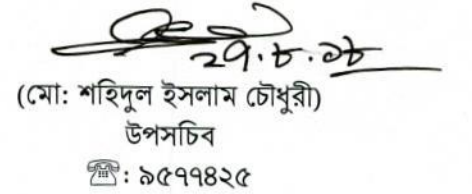 ২৭.৮.১৮
(মো: শহিদুল ইসলাম চৌধুরী)
উপসচিব
☎: ৯৫৭৭৪২৫